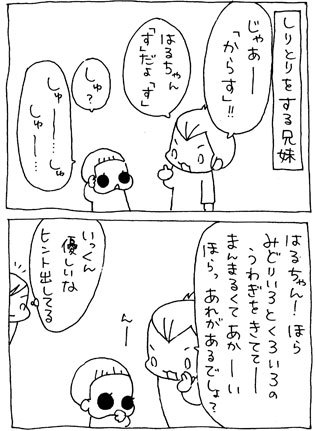 しりとりをする兄妹
じゃあー
「からす」!!
はるちゃん
「す」だよ「す」
しゅ?
しゅー…
しゅー…しゅ
はるちゃん!ほら
みどりいろとくろいろの
うわぎをきてて
まんまるくてあかーい
ほらっあれがあるでしょ?
んー
いっくん
優しいな
ヒント出してる